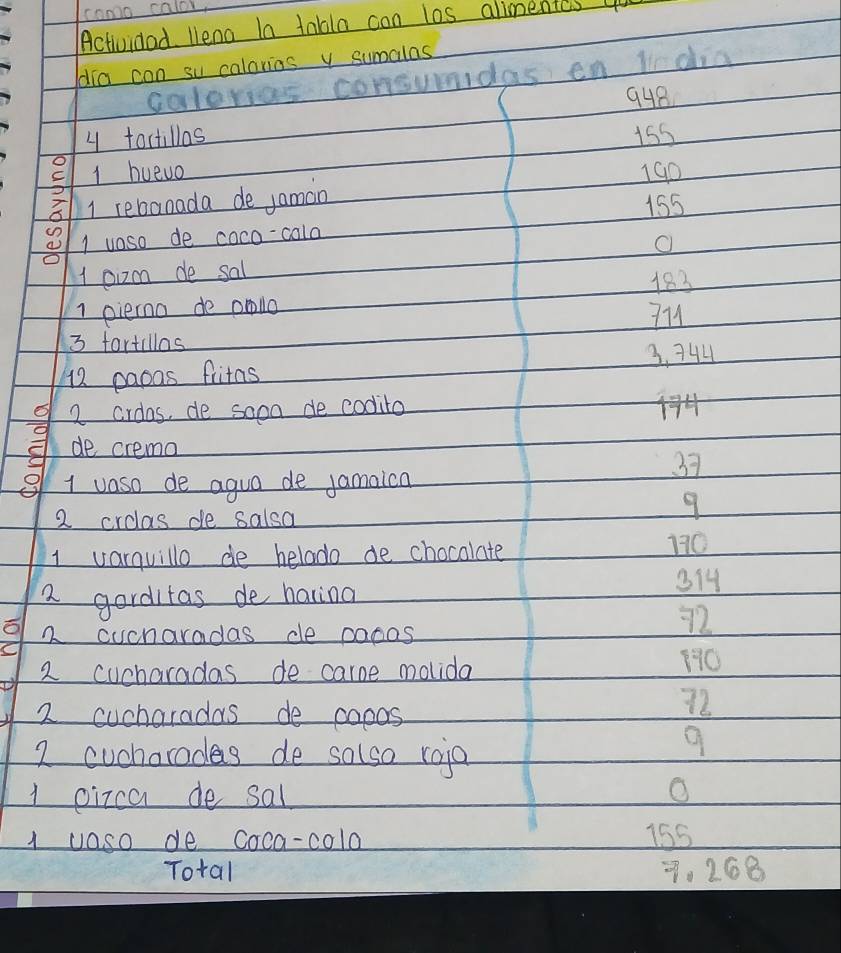 como calor
Actividad. llena la tabla con los alimentos
día con su calorias y sumalas
calorias consumidas en 1 dia
Desayuno
4 tortillas 948
1 huevo 155
1 rebanada de jamón 190
1 vaso de coca-cola 155
1 pizca de sal 0
comida
1 pierna de pollo 183
3 tortillas 711
12 papas fritas 3.744
2 crdas. de sopa de codito 174
de crema
1 vaso de agua de jamaica 37
2 crdas de salsa 9
1 varquillo de helado de chocolate 170
2 gorditas de harina 314
2 cucharadas de papas 72
2 cucharadas de carne molida 190
2 cucharadas de papas 72
2 cucharadas de salsa roja 9
1 pizca de sal 0
1 vaso de coca-cola 155
Total 7.268